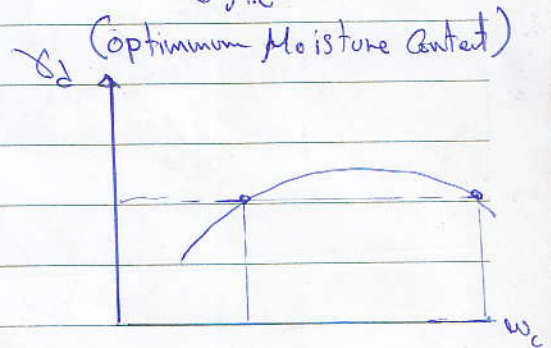 (optimmum Moisture Content)
γd
wc